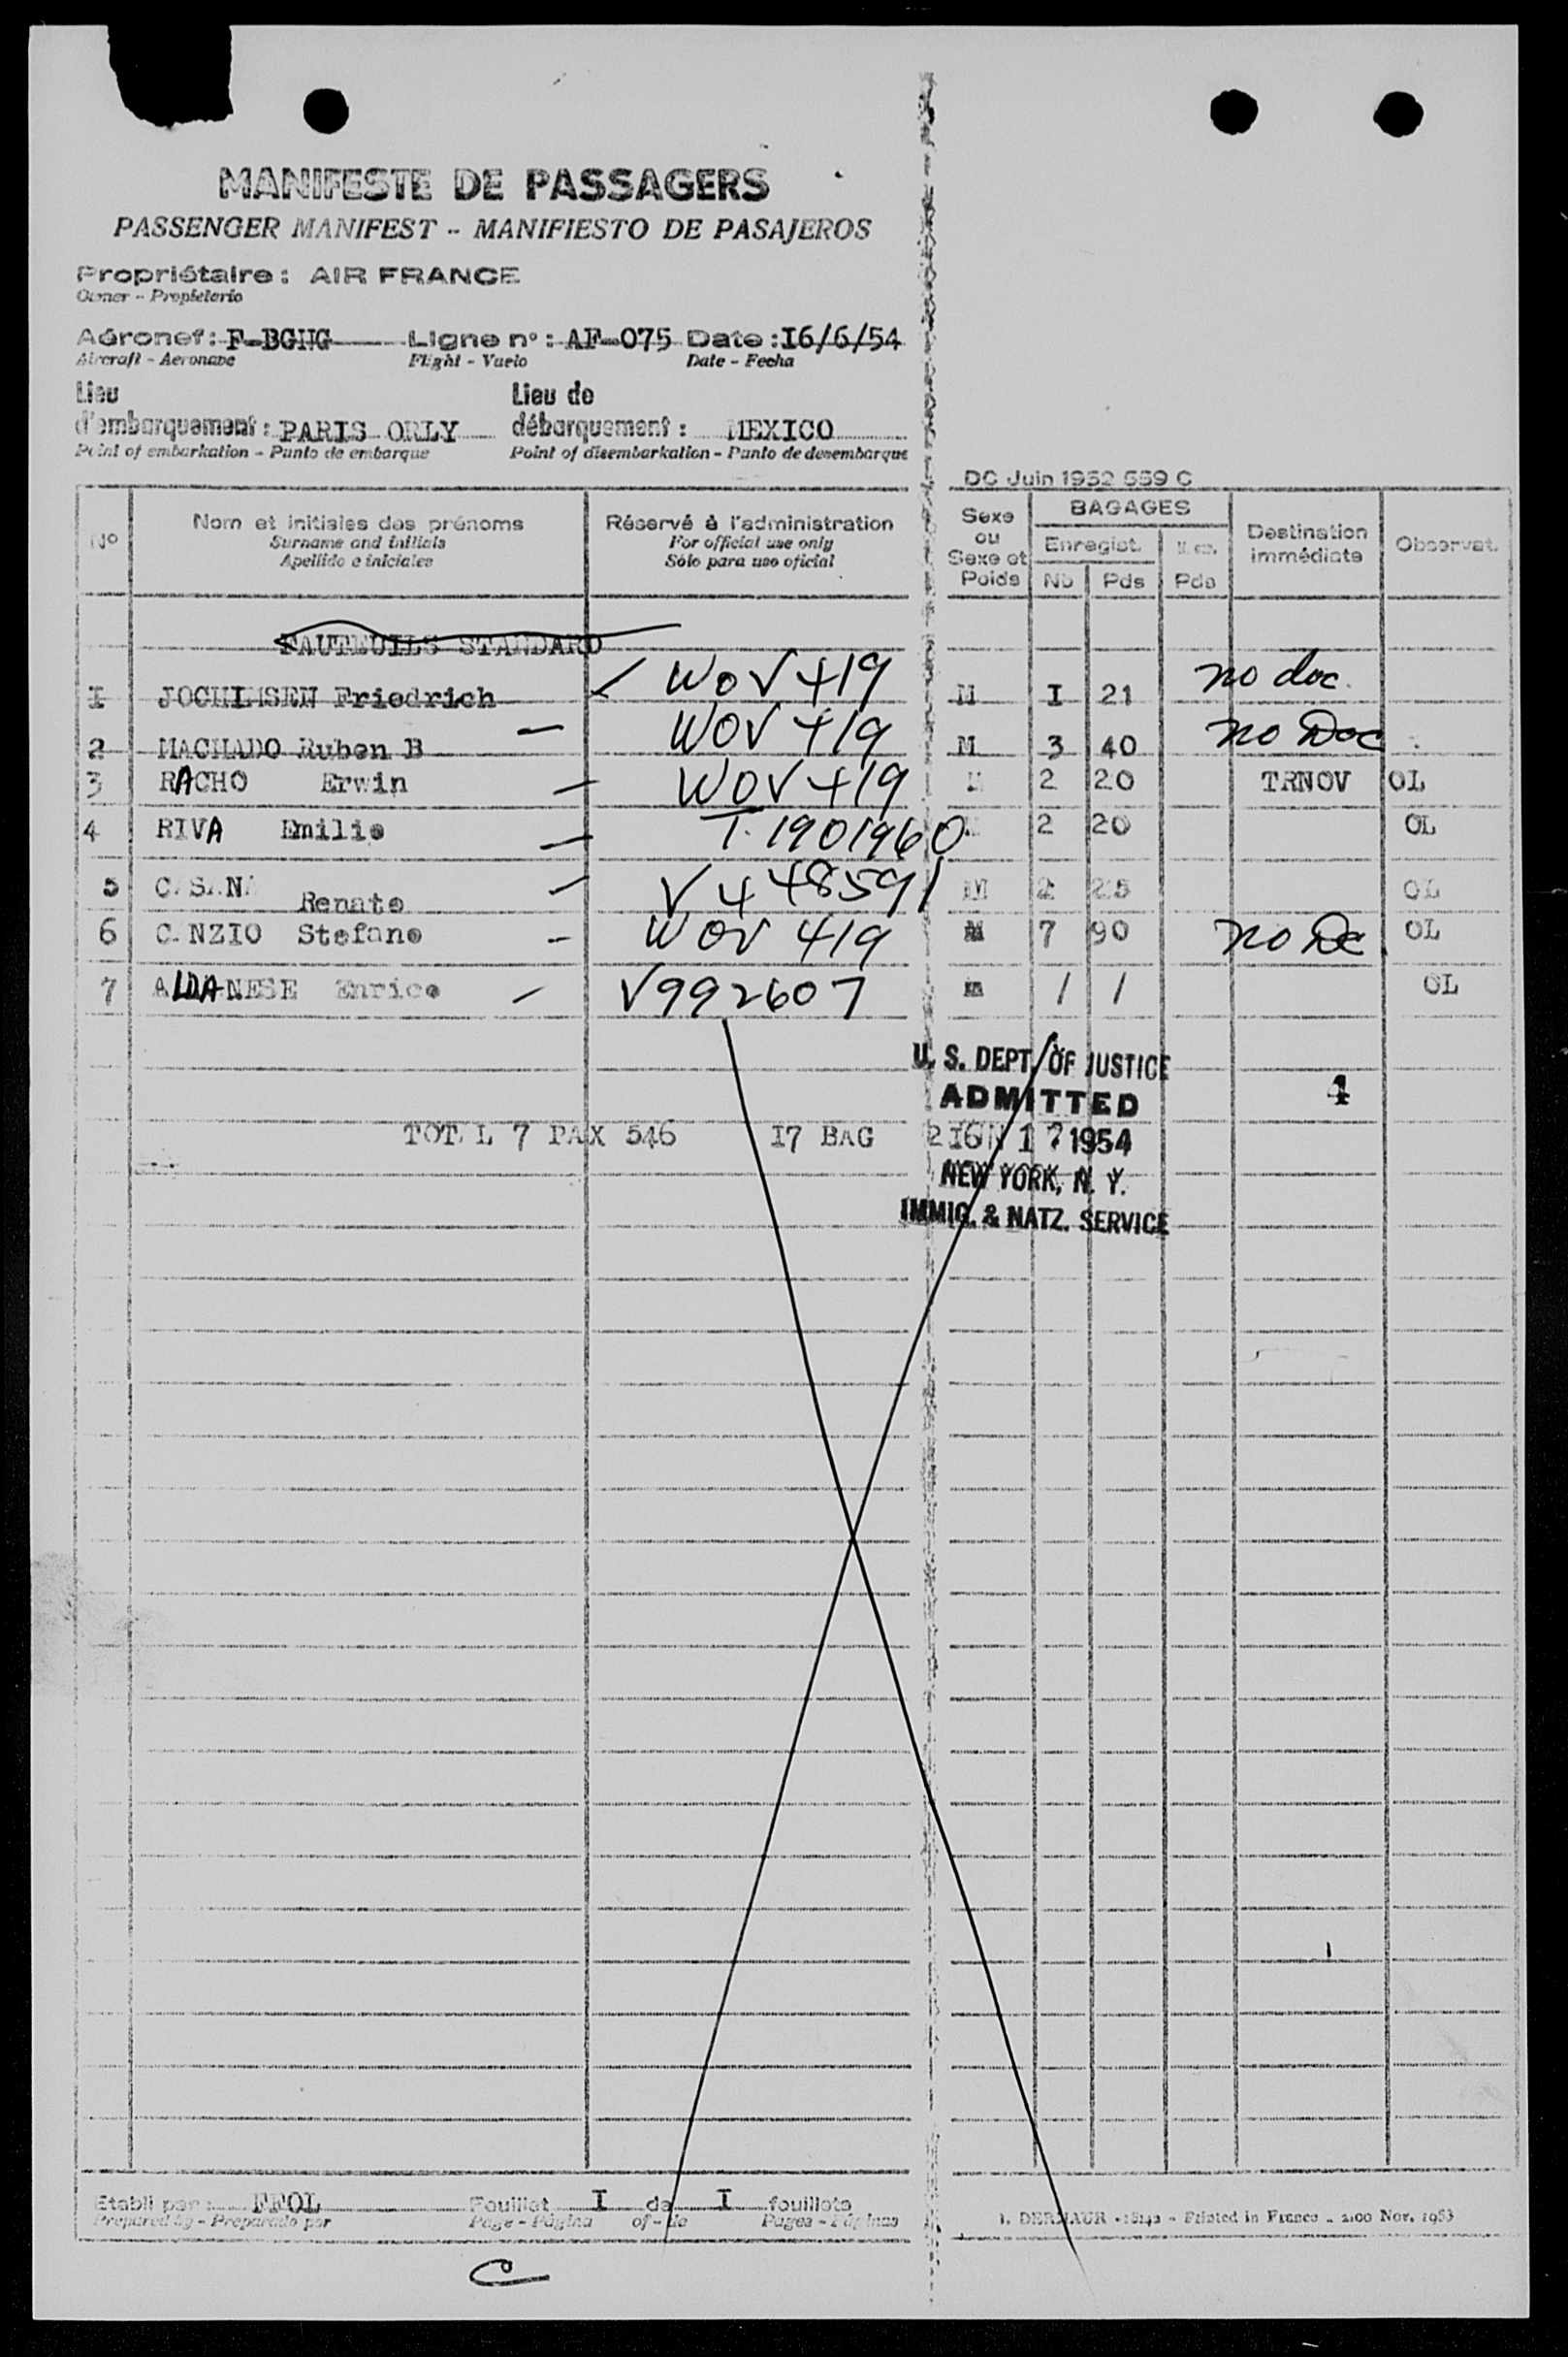 MANIFESTE DE PASSAGERS
PASSENGER MANIFEST - MANIFIESTO DE PASAJEROS
Propriétaire : AIR FRANCE
Owner - Propietario
Aéronef : F-BGHG Ligne n° : AF-075 Date : I6/6/54
Aircraft - Aeronave Flight - Vuelo Date - Fecha
Lieu Lieu de
d'embarquement : PARIS ORLY débarquement : MEXICO
Point of embarkation - Punto de embarque Point of disembarkation - Punto de desembarque
DC Juin 1952 559 C
N° Nom et initiales des prénoms Réservé à l'administration Sexe ou Sexe et Poids BAGAGES Destination immédiate Observat.
Surname and initials For official use only Enregist.
Apellido e iniciales Sólo para uso oficial Nb Pds Pds
FAUTEUILS STANDARD
I JOCHIMSEN Friedrich WOV 419 M I 21 no doc.
2 MACHADO Ruben B WOV 419 M 3 40 no Doc
3 RACHO Erwin WOV 419 M 2 20 TRNOV OL
4 RIVA Emilio T. 1901960 2 20 OL
5 C.SAN. Renato V 448591 M 2 25 OL
6 C.NZIO Stefano WOV 419 M 7 90 no Dc OL
7 ALDANESE Enrico V992607 / / OL
U. S. DEPT. OF JUSTICE
ADMITTED 4
TOT.L 7 PAX 546 I7 BAG 2I6 17 1954
NEW YORK, N. Y.
IMMIG. & NATZ. SERVICE
Etabli par : FFOL Feuillet I de I feuillets
Prepared by - Preparado por Page - Página of - de Pages - Páginas
Printed in France - 2100 Nov. 1953
C